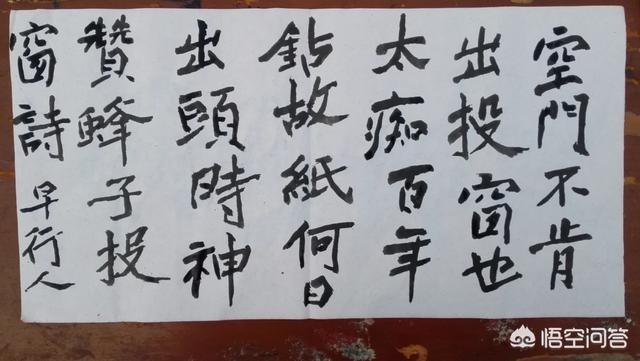 空門不肯
出投窗也
太痴百年
鉆故紙何日
出頭時神
贊蜂子投
窗詩 早行人
悟空问答